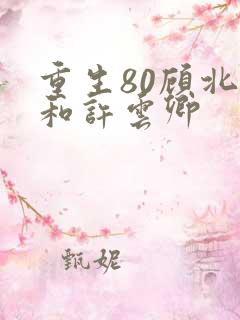 重生80顾北
和許雲卿
甄妮